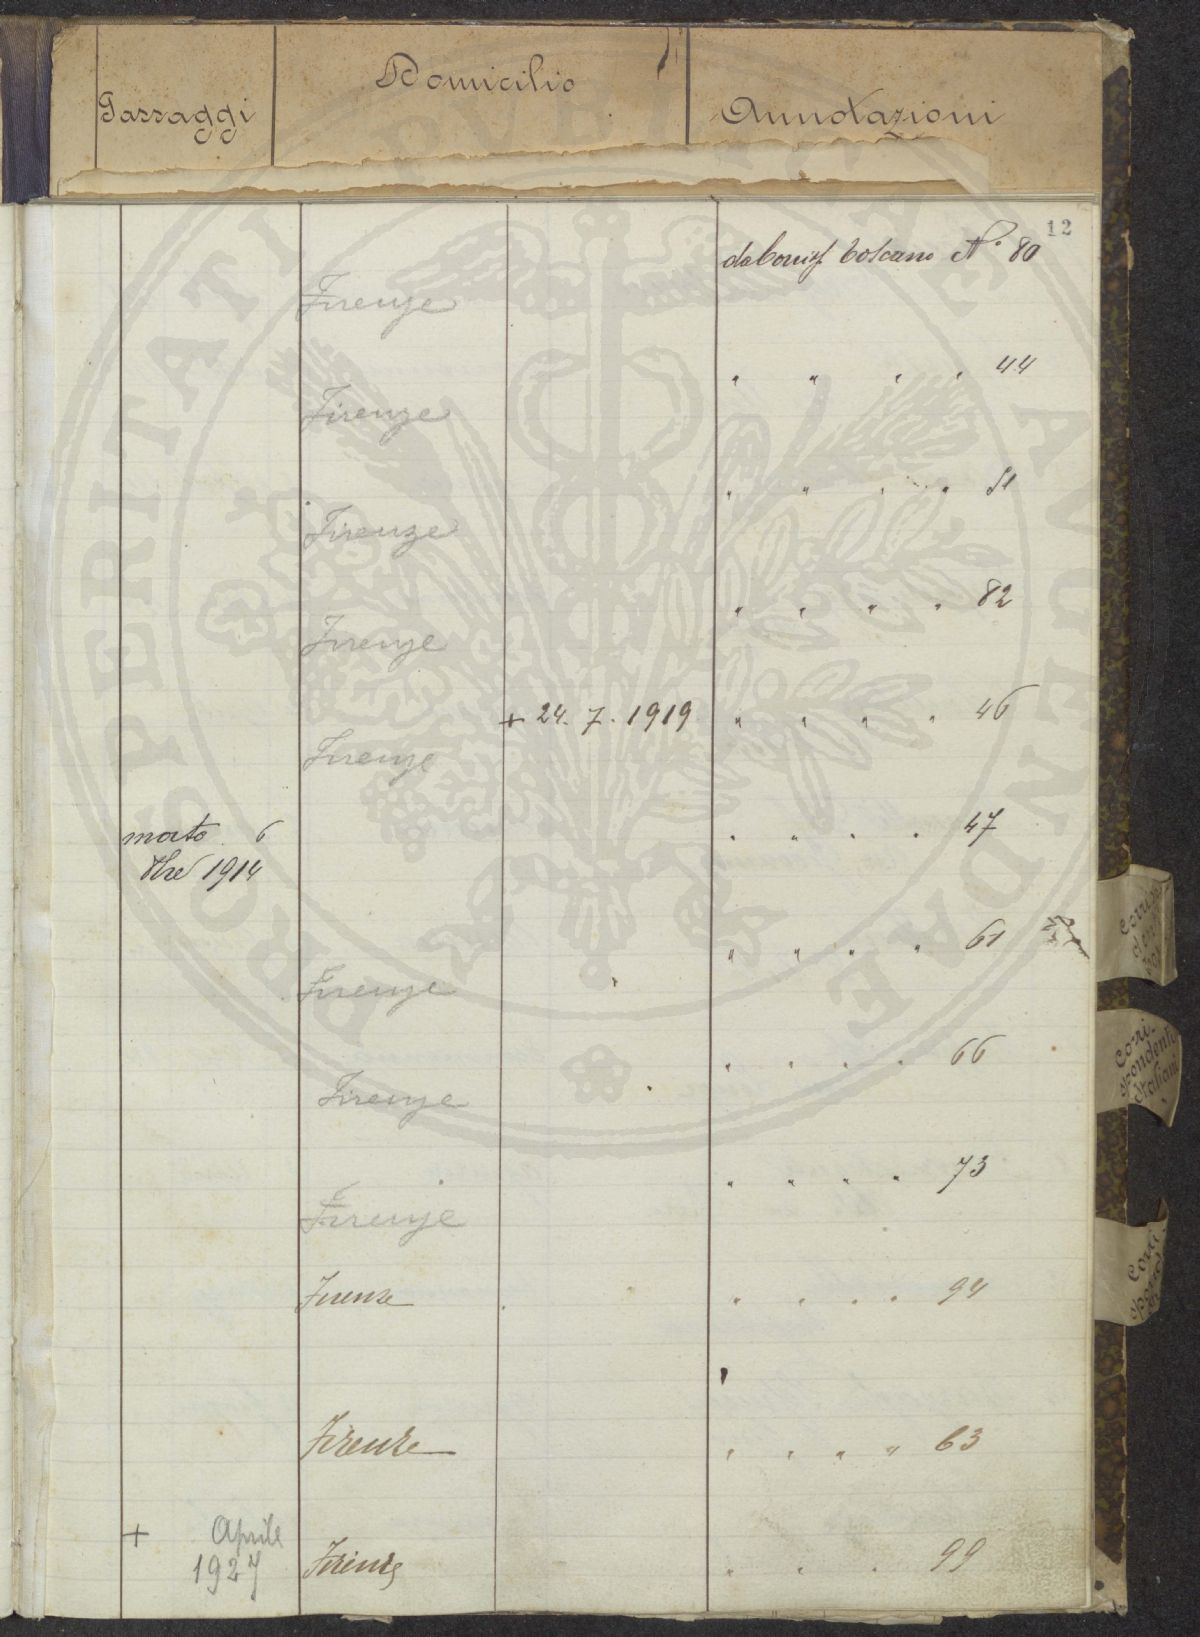 Passaggi
Domicilio
Annotazioni
12
N.° 80
Firenze
" " " " 44
Firenze
" " " " 51
Firenze
" " " " 82
Firenze
+ 24. 7. 1919 " " " " 46
Firenze
morto 6 " " " " 47
8bre 1914
" " " " 61
Firenze
" " " " 66
Firenze
" " " " 73
Firenze
Firenze " " " " 94
Firenze " " " " 63
+ Aprile
1927 Firenze " " " 99
Corri-
spondenti
Italiani
Corri
PROSPERITATI PUBLICAE AUGENDAE